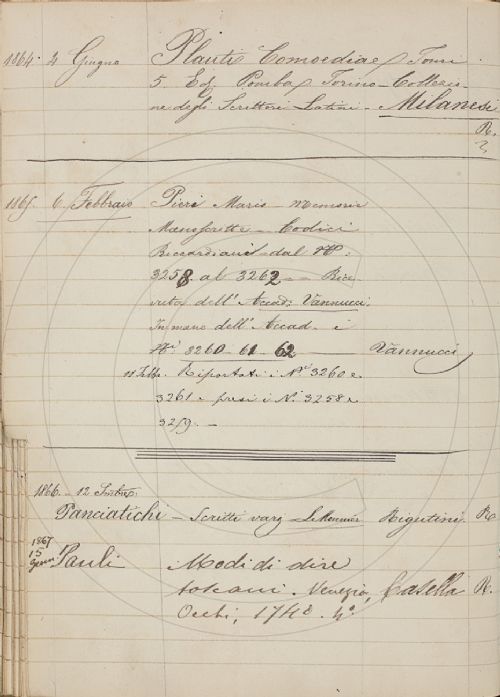 1864. 4 Giugno Plauti Comoediae Tomi
5 Ed. Pomba Torino Collezio-
ne degli Scrittori Latini - Milanese
R.
1865. 6 Febbraio Pieri Mario - Memorie
Manoscritte - Codici
Riccardiani dal N°:
3258 al 3262 - Rice
vuta dell' Accad: Vannucci.
In mano dell' Accad. i
Ni 3260 - 61 - 62 Vannucci
11 Febb. Riportati i Ni 3260 e
3261 e presi i N. 3258 e
3259. -
1866 - 12
Panciatichi - Scritti varj LeMonnier Rigutini R.
1867
15
Genn. Pauli Modi di dire
toscani. Venezia, Casella R.
Occhi, 1740. 4°